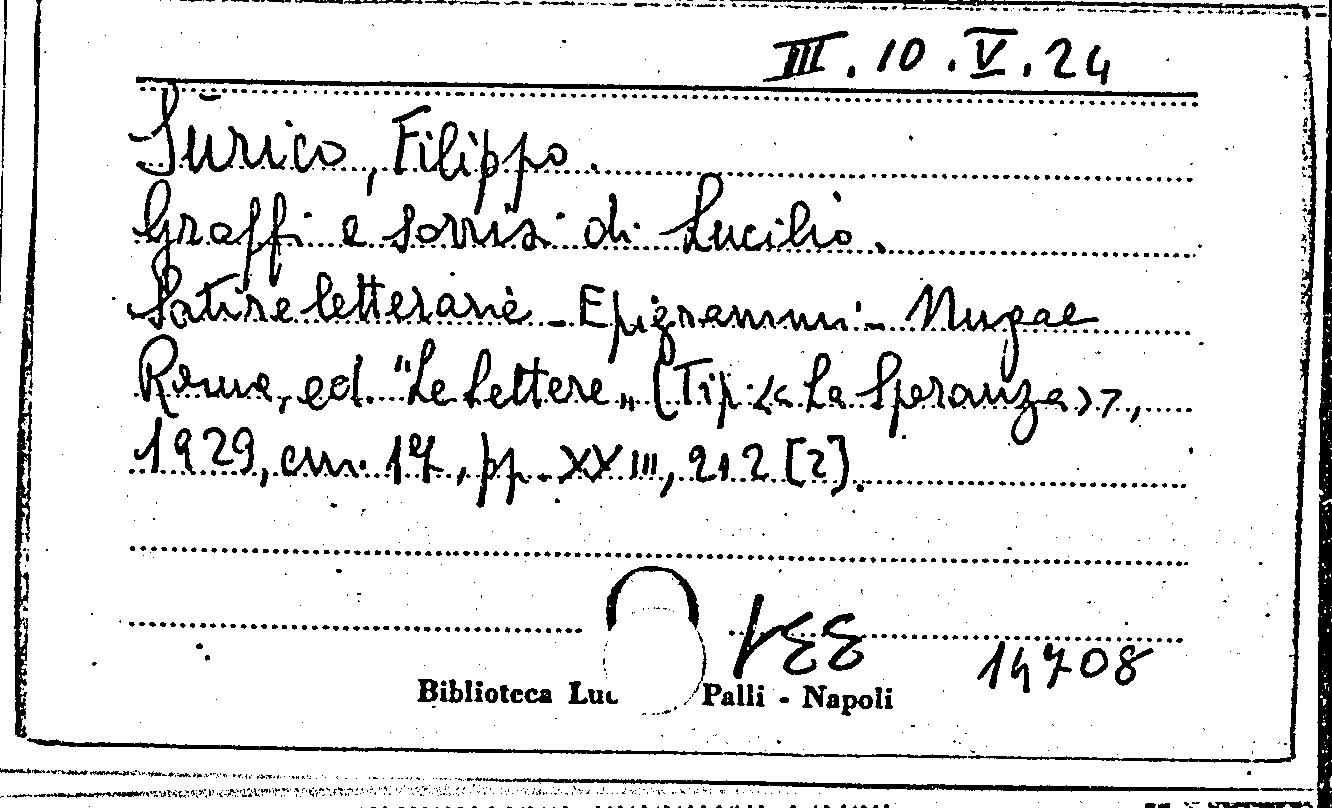 III.10.V.24
Sūrico, Filippo.
Graffi e sorrisi di Lucilio.
Satire letterarie - Epigrammi - Nugae
Roma, ed. "Le Lettere" (Tip. << La Speranza >>,
1929, cm. 17, pp. XXIII, 212 [2].
14708
Biblioteca Luc Palli - Napoli